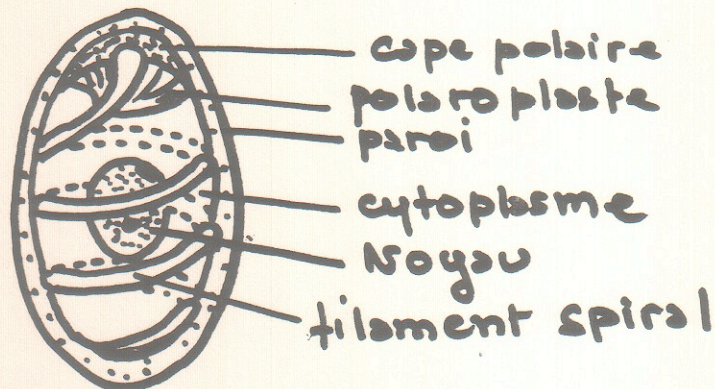 cape polaire
polaroplaste
paroi
cytoplasme
Noyau
filament spiral